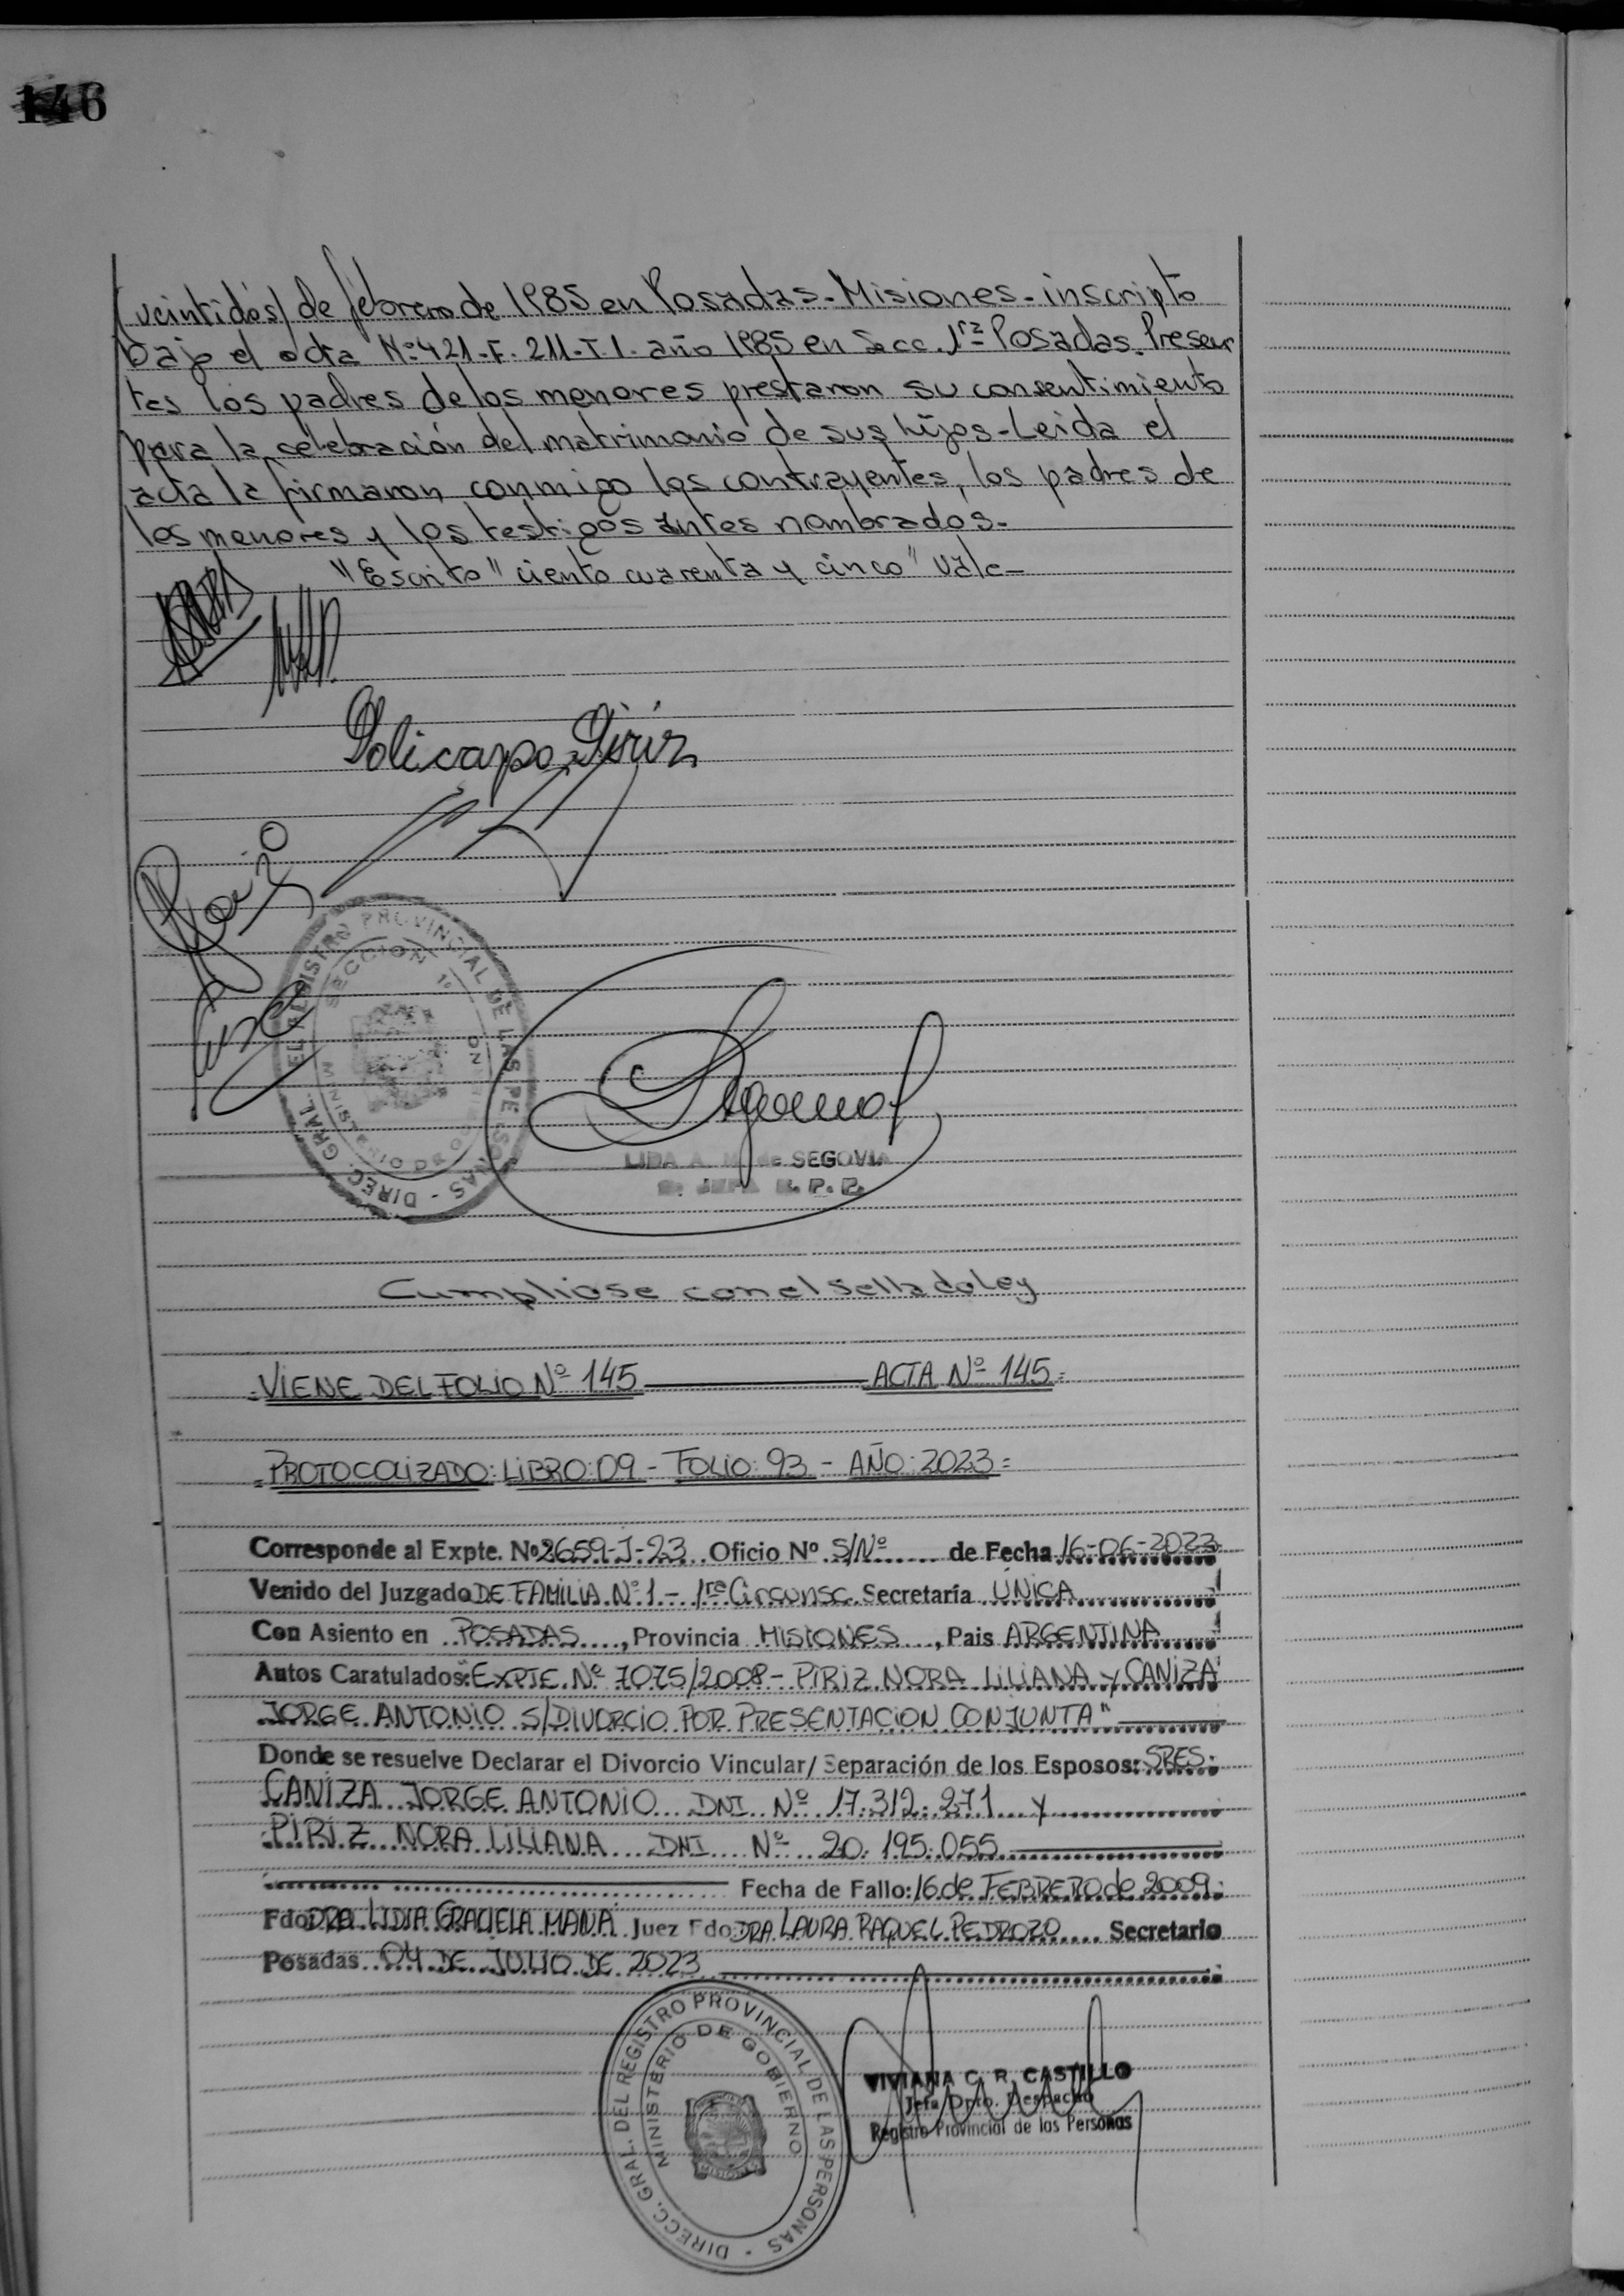 146
(veintidós) de febrero de 1985 en Posadas - Misiones - inscripto
bajo el acta Nº 421 - F. 211 - T. I. año 1985 en Secc. 1ra Posadas. Presen
tes los padres de los menores prestaron su consentimiento
para la celebración del matrimonio de sus hijos - Leida el
acta la firmaron conmigo los contrayentes, los padres de
los menores y los testigos antes nombrados.-
"Escrito" ciento cuarenta y cinco" Vale-
Policarpo Piriz
DIREC. GRAL. DEL REGISTRO PROVINCIAL DE LAS PERSONAS
SECCION 1º
LIDA A. de SEGOVIA
JEFA R. P. P.
Cumpliose con el Sellado Ley
=VIENE DEL FOLIO Nº 145 ACTA Nº 145=
=PROTOCOLIZADO: LIBRO: 09 - FOLIO: 93 - AÑO: 2023=
Corresponde al Expte. Nº 2659-J-23 Oficio Nº S/Nº de Fecha 16-06-2023
Venido del Juzgado DE FAMILIA Nº 1 - 1ra Circunsc. Secretaría UNICA
Con Asiento en POSADAS, Provincia MISIONES, Pais ARGENTINA
Autos Caratulados: "EXPTE. Nº 7075/2008 - PIRIZ NORA LILIANA y CANIZA
JORGE ANTONIO S/DIVORCIO POR PRESENTACION CONJUNTA"
Donde se resuelve Declarar el Divorcio Vincular/ Separación de los Esposos: SRES.
CANIZA JORGE ANTONIO DNI Nº 17.312.271 y
PIRIZ NORA LILIANA DNI Nº 20.195.055
Fecha de Fallo: 16 de FEBRERO de 2009.
Fdo DRA. LIDIA GRACIELA MANA Juez Fdo. DRA. LAURA RAQUEL PEDROZO Secretario
Posadas 04 DE JULIO DE 2023
DIRECC. GRAL. DEL REGISTRO PROVINCIAL DE LAS PERSONAS
MINISTERIO DE GOBIERNO
VIVIANA C. R. CASTILLO
Jefa Dpto. Despacho
Registro Provincial de las Personas